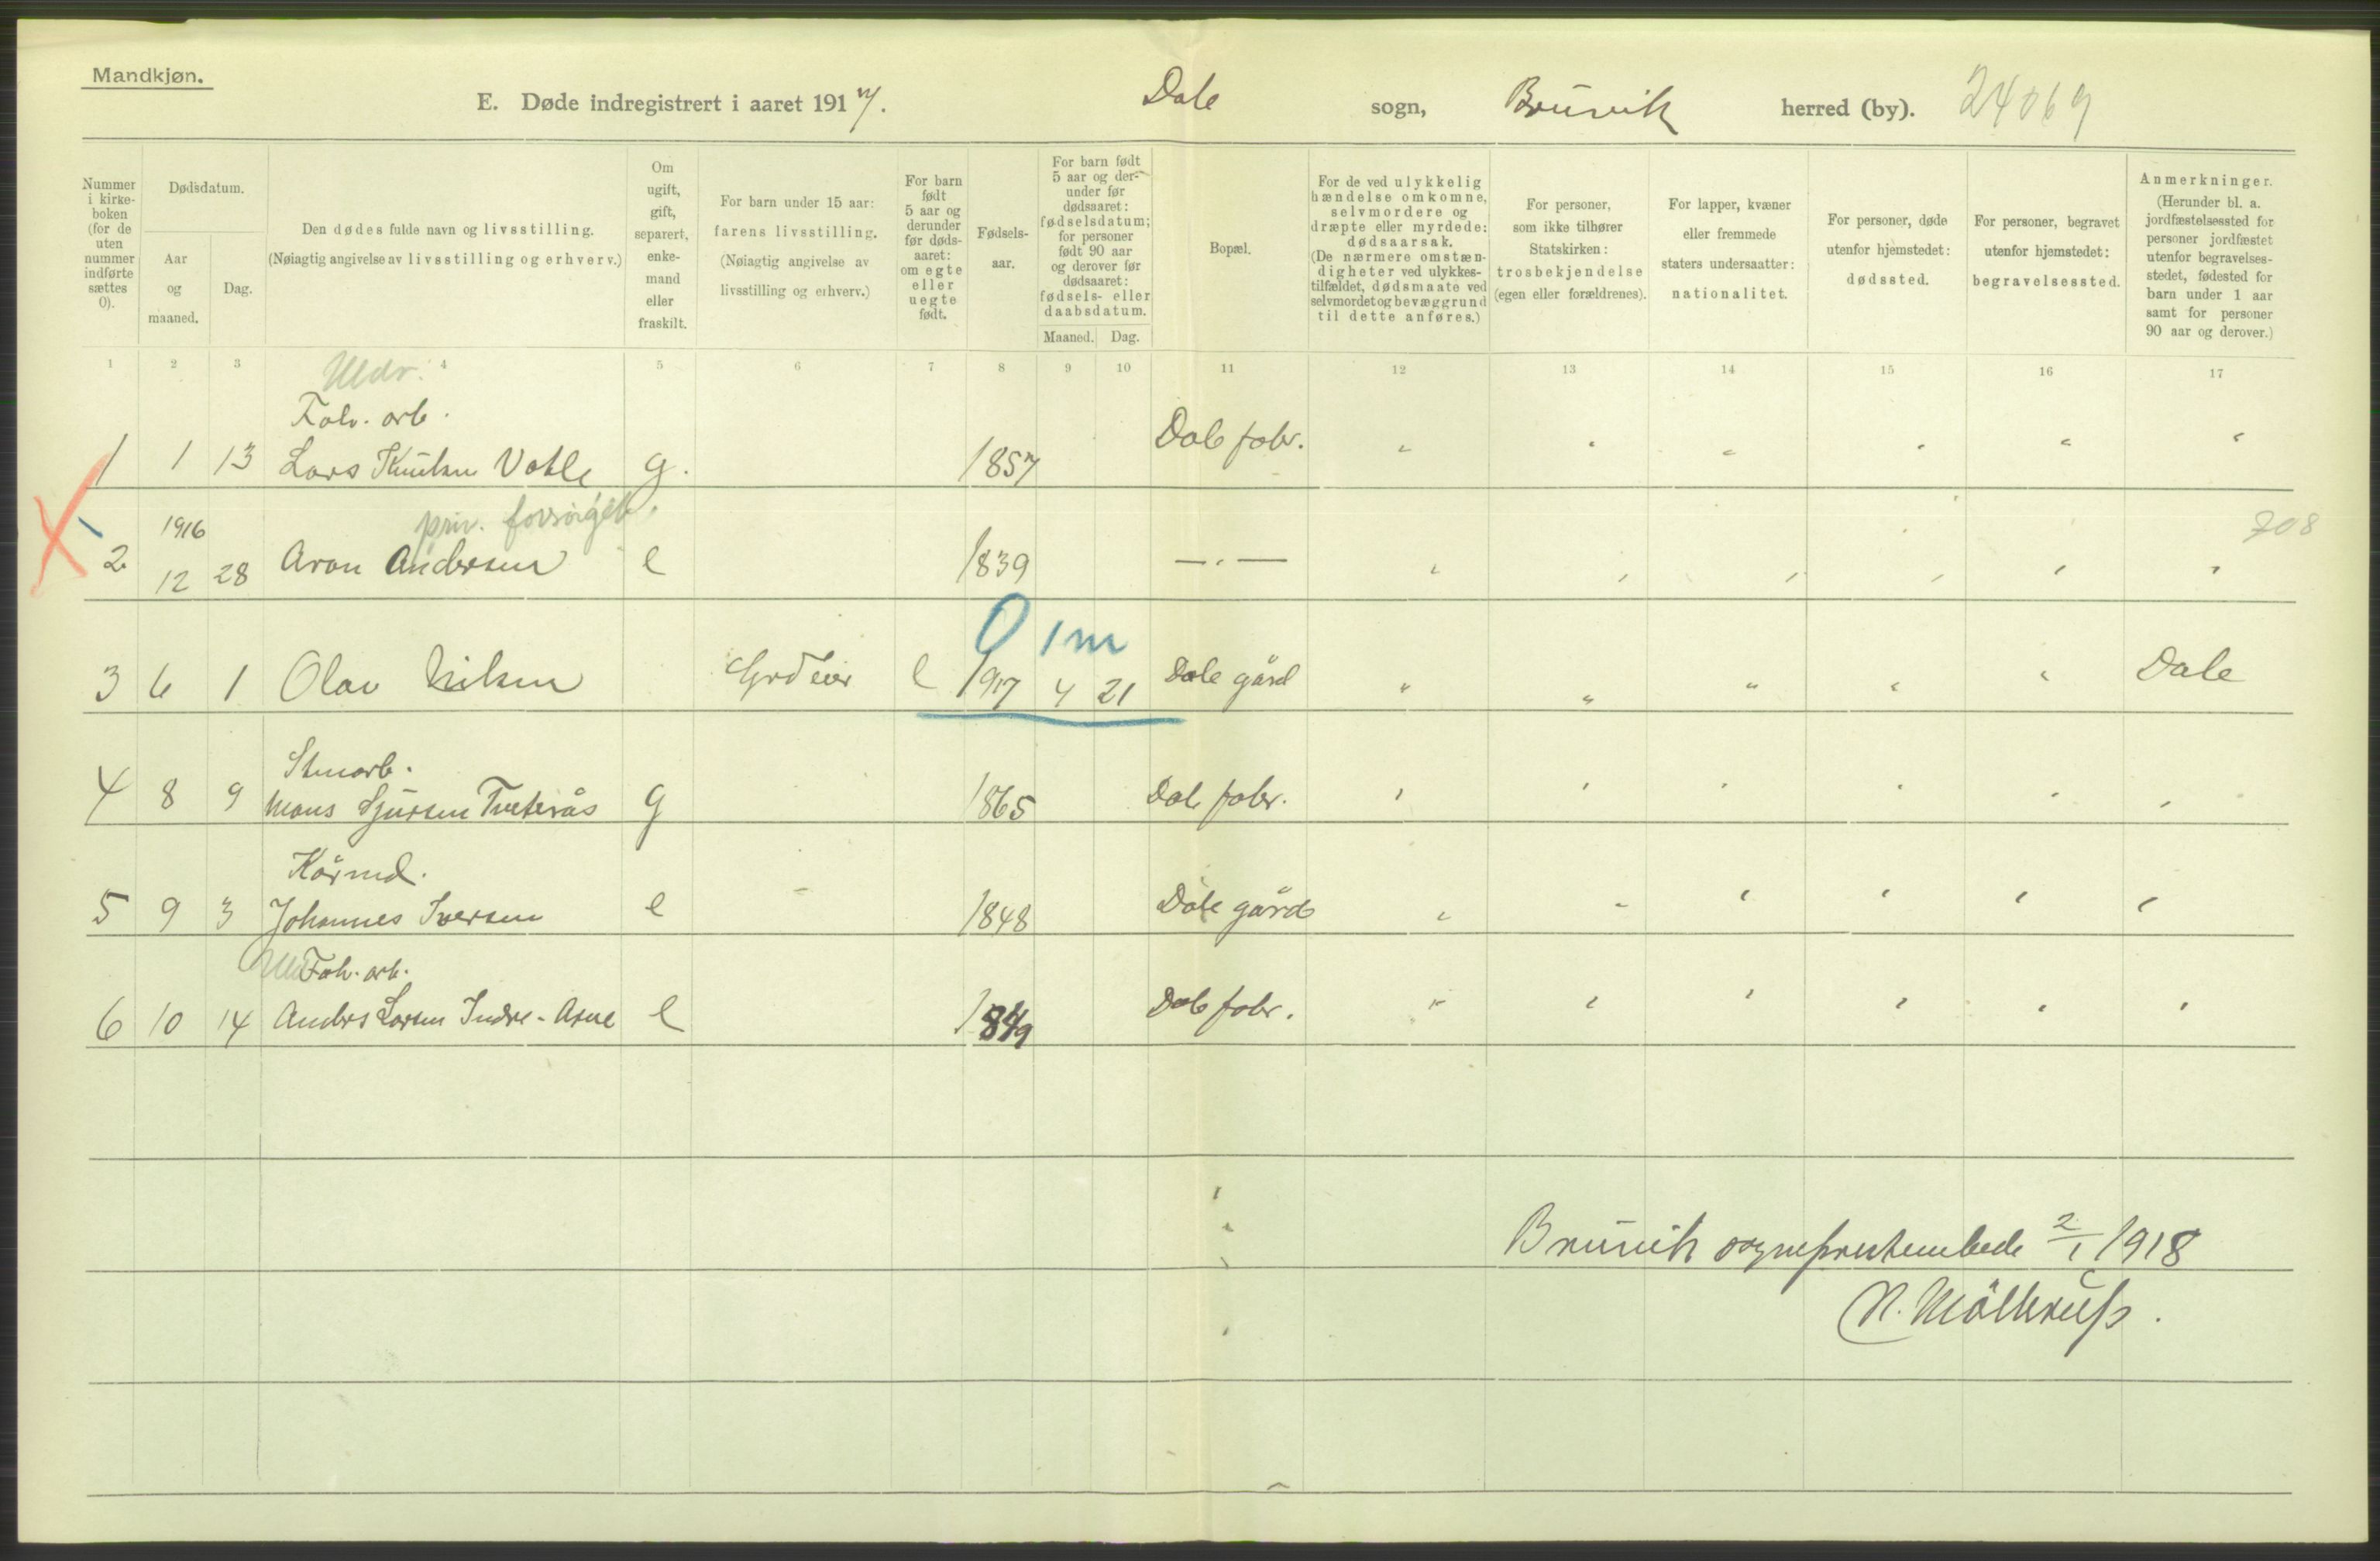 Mandkjøn.
E. Døde indregistrert i aaret 1917. Dale sogn, Bruvik herred (by). 24069
Nummer i kirke-boken (for de uten nummer indførte sættes 0).
Dødsdatum.
Aar og maaned.
Dag.
Den dødes fulde navn og livsstilling.
(Nøiagtig angivelse av livsstilling og erhverv.)
Om ugift, gift, separert, enke-mand eller fraskilt.
For barn under 15 aar: farens livsstilling.
(Nøiagtig angivelse av livsstilling og erhverv.)
For barn født 5 aar og derunder før døds-aaret: om egte eller uegte født.
Fødsels-aar.
For barn født 5 aar og der-under før dødsaaret: fødselsdatum; for personer født 90 aar og derover før dødsaaret: fødsels- eller daabsdatum.
Maaned. Dag.
Bopæl.
For de ved ulykkelig hændelse omkomne, selvmordere og dræpte eller myrdede: dødsaarsak.
(De nærmere omstæn-digheter ved ulykkes-tilfældet, dødsmaate ved selvmordet og bevæggrund til dette anføres.)
For personer, som ikke tilhører Statskirken: trosbekjendelse (egen eller forældrenes).
For lapper, kvæner eller fremmede staters undersaatter: nationalitet.
For personer, døde utenfor hjemstedet: dødssted.
For personer, begravet utenfor hjemstedet: begravelsessted.
Anmerkninger.
(Herunder bl. a. jordfæstelsessted for personer jordfæstet utenfor begravelses-stedet, fødested for barn under 1 aar samt for personer 90 aar og derover.)
1 2 3 4 5 6 7 8 9 10 11 12 13 14 15 16 17
Uldv.
Fabr. arb.
1 1 13 Lars Knutsen Vatle g. 1857 Dale fabr. " " " " " "
priv. forsørget.
1916
2 12 28 Aron Andersen e 1839 —"— " " " " " " 708
0 1m
3 6 1 Olav Nilsen Grdeier e 1917 4 21 Dale gård " " " " " Dale
Stenarb.
4 8 9 Mons Sjursen Tveterås g 1865 Dale fabr. " " " " " "
Kårmd.
5 9 3 Johannes Iversen e 1848 Dale gård " " " " " "
Fab. arb.
6 10 14 Anders Larsen Indre-Arne e 1849 Dale fabr. " " " " " "
Bruvik sogneprestembede 2/1 1918